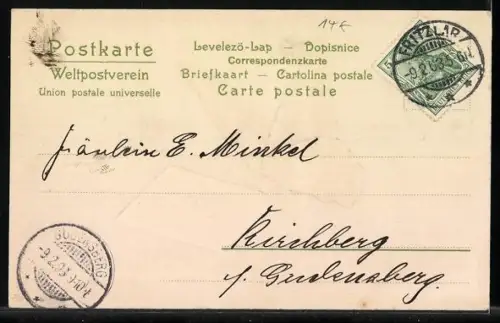 14€
Postkarte
Weltpostverein
Union postale universelle
Levelező-Lap – Dopisnice
Correspondenzkarte
Briefkaart – Cartolina postale
Carte postale
FRITZLAR
5
Fräulein E. Minkel
Kirchberg
b/ Gudensberg.
GUDENSBERG